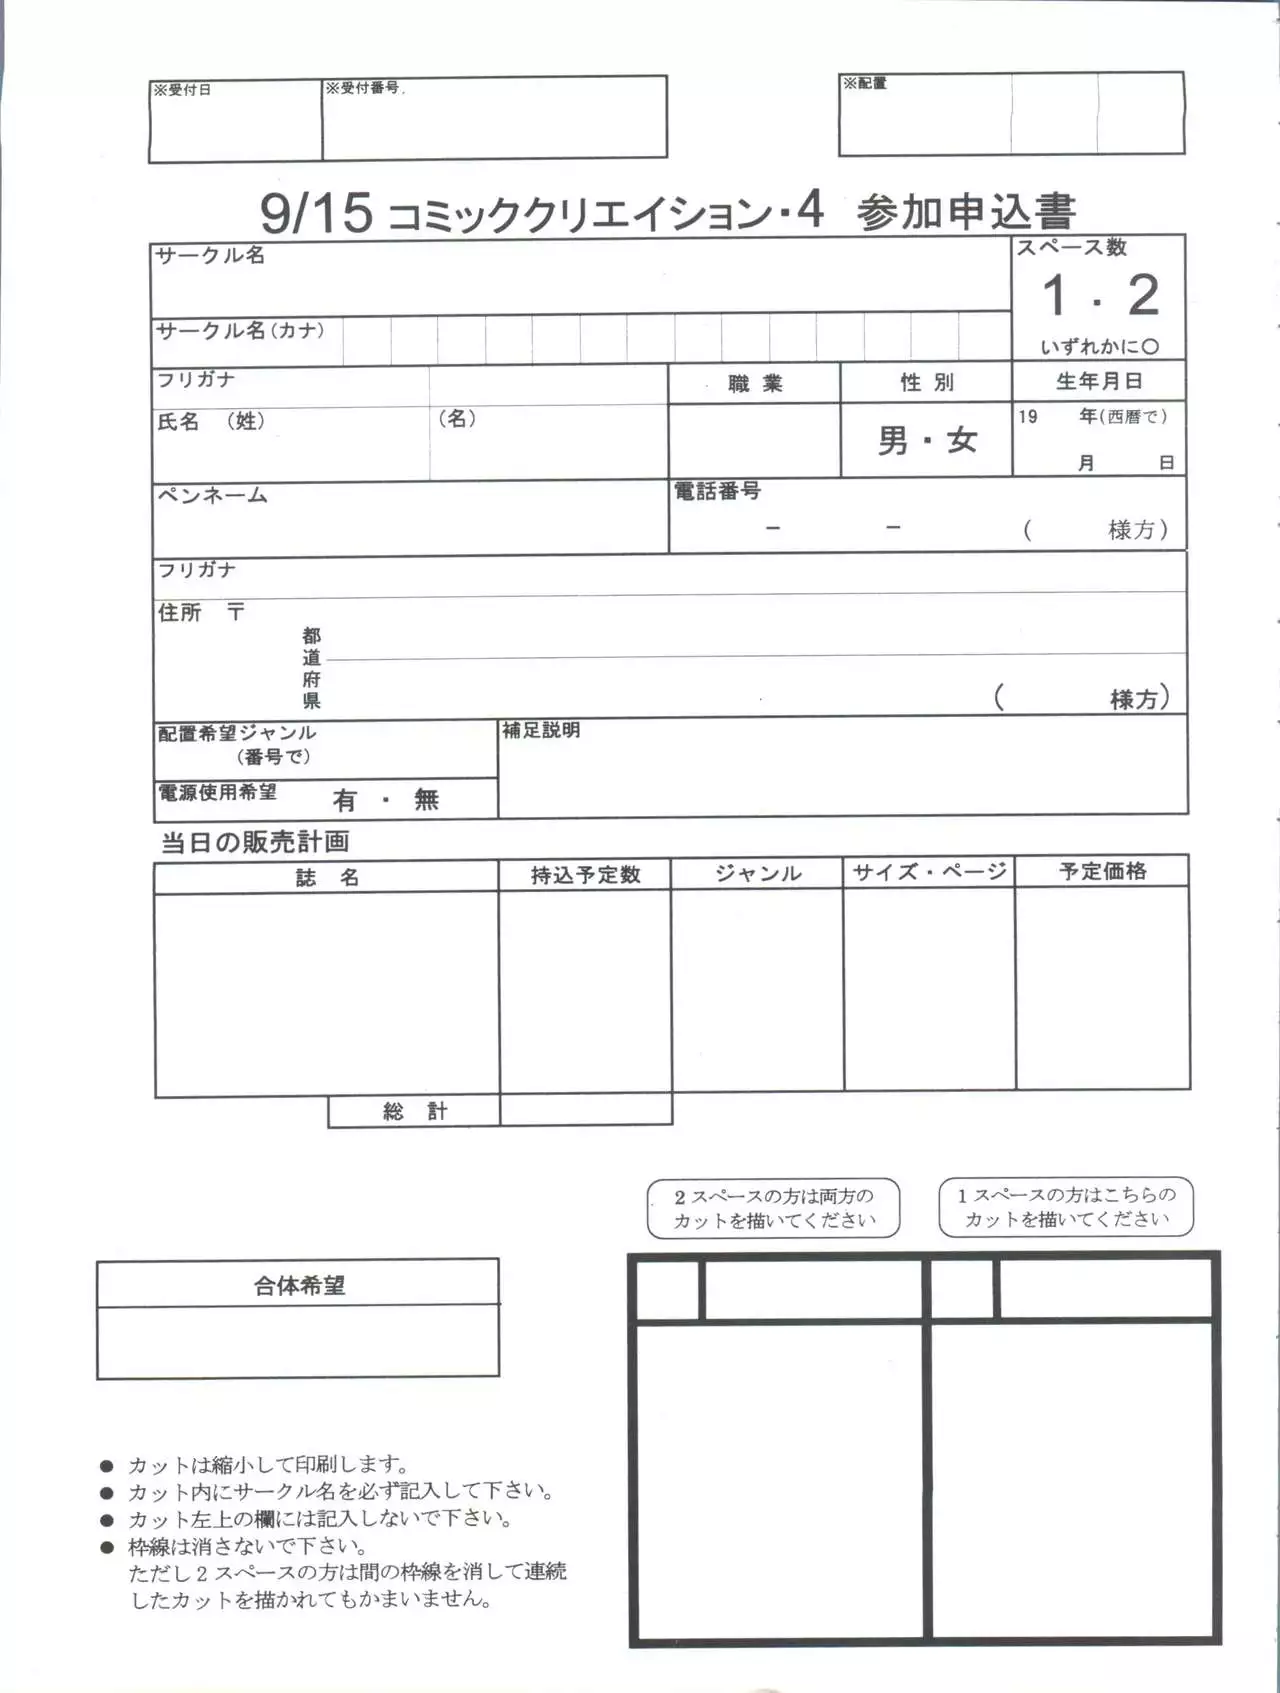 ※受付日
※受付番号
※配置
9/15 コミッククリエイション・4 参加申込書
サークル名
スペース数
1 . 2
いずれかに○
サークル名(カナ)
フリガナ
職 業
性 別
生年月日
氏名 (姓)
(名)
男・女
19 年(西暦で)
月 日
ペンネーム
電話番号
− − ( 様方)
フリガナ
住所 〒
都
道
府
県
( 様方)
配置希望ジャンル
(番号で)
補足説明
電源使用希望 有 ・ 無
当日の販売計画
誌 名
持込予定数
ジャンル
サイズ・ページ
予定価格
総 計
2スペースの方は両方の
カットを描いてください
1スペースの方はこちらの
カットを描いてください
合体希望
● カットは縮小して印刷します。
● カット内にサークル名を必ず記入して下さい。
● カット左上の欄には記入しないで下さい。
● 枠線は消さないで下さい。
ただし2スペースの方は間の枠線を消して連続
したカットを描かれてもかまいません。